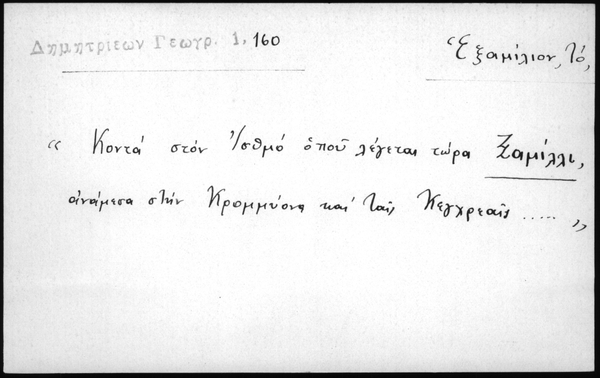 Δημητριεων Γεωγρ. 1, 160
Ἑξαμίλιον, τό,
“ Κοντά στόν Ἰσθμό ὁποῦ λέγεται τώρα Ξαμίλλι,
ἀνάμεσα στήν Κρομμύονα καί ταῖς Κεγχρεαῖς ..... „